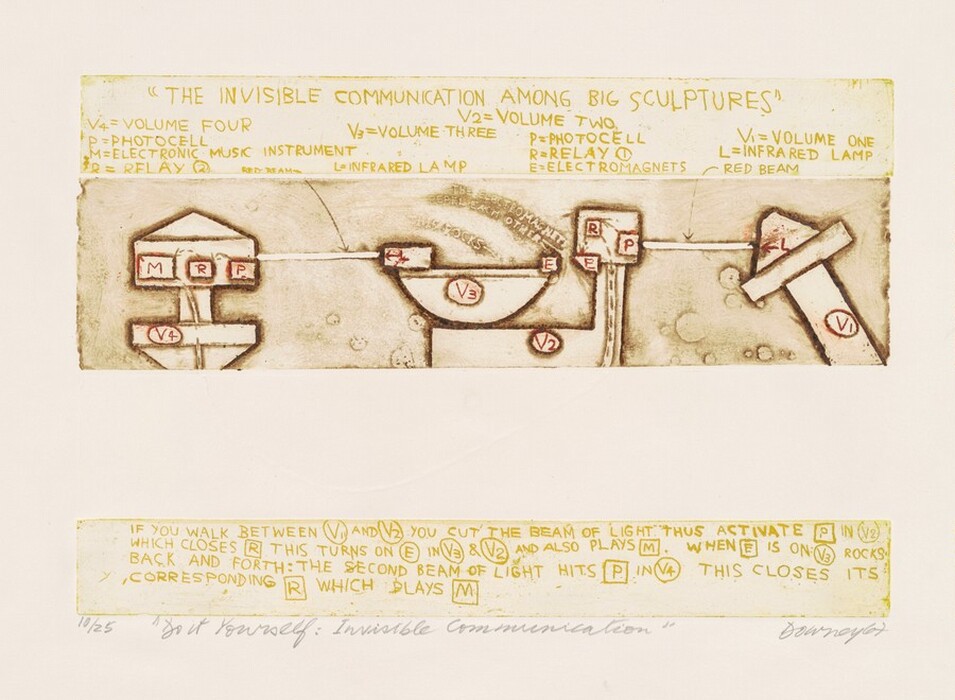 "THE INVISIBLE COMMUNICATION AMONG BIG SCULPTURES"
V4=VOLUME FOUR
P=PHOTOCELL
M=ELECTRONIC MUSIC INSTRUMENT
R=RELAY ②
RED BEAM
V3=VOLUME THREE
L=INFRARED LAMP
V2=VOLUME TWO
P=PHOTOCELL
R=RELAY ①
E=ELECTROMAGNETS
V1=VOLUME ONE
L=INFRARED LAMP
RED BEAM
M R P
V4
L
V3
E
E
R
P
V2
L
V1
IF YOU WALK BETWEEN V1 AND V2 YOU CUT THE BEAM OF LIGHT THUS ACTIVATE P IN V2
WHICH CLOSES R THIS TURNS ON E IN V3 & V2 AND ALSO PLAYS M. WHEN E IS ON: V3 ROCKS
BACK AND FORTH: THE SECOND BEAM OF LIGHT HITS P IN V4 THIS CLOSES ITS
CORRESPONDING R WHICH PLAYS M
10/25 "Do it Yourself: Invisible Communication" Downey 67